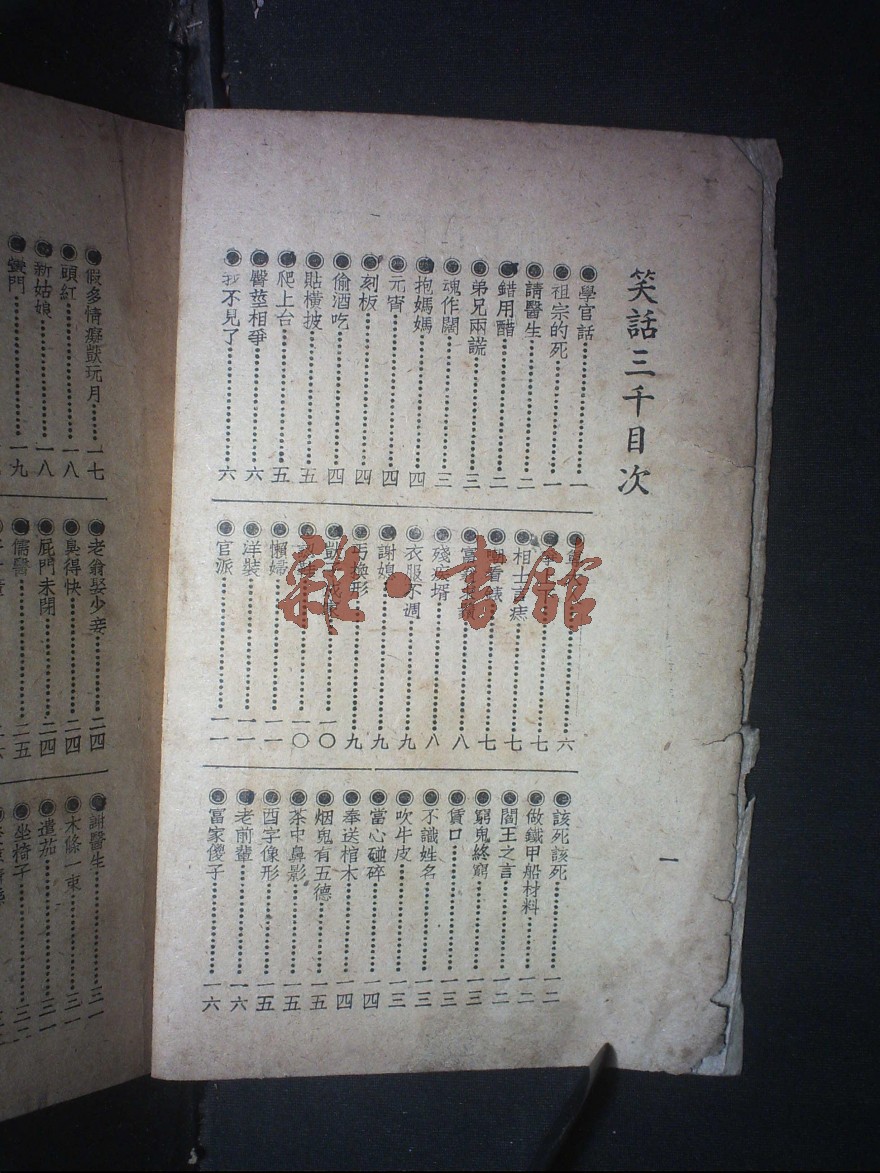 笑話三千目次
學官話 一
祖宗的死 一
請醫生 二
錯用醋 二
弟兄兩謊 三
魂作闊 三
抱媽媽 四
元宵 四
刻板 四
偷酒吃 四
貼橫披 五
爬上台 五
臀莖相爭 六
我不見了 六
六
七
相士言痣 七
看錶 七
八
殘疾壻 八
衣服不週 九
謝媳 九
丐換形 九
一〇
一〇
懶婦 一一
洋裝 一一
官派 一一
該死該死 一二
做鐵甲船材料 一二
閻王之言 一二
窮鬼終窮 一三
賃口 一三
不識姓名 一三
吹牛皮 一三
當心碰碎 一四
奉送棺木 一四
烟鬼有五德 一五
茶中鼻影 一五
酉字像形 一五
老前輩 一六
冨家傻子 一六
一
雜·書館
假多情癡獃玩月 一七
頭紅 一八
新姑娘 一八
門 一九
老翁娶少妾 二四
臭得快 二四
屁門未閉 二四
儒醫 二五
謝醫生 三一
木條一束 三一
遺茄 三一
坐椅子